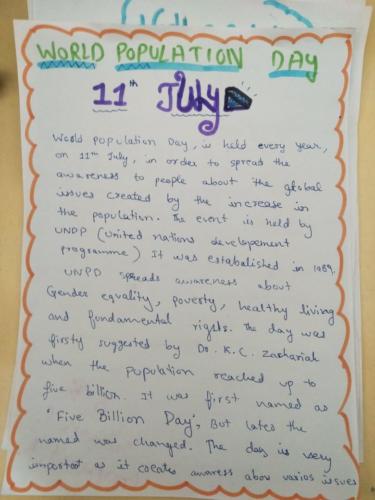 WORLD POPULATION DAY
11th July
World Population Day, is held every year,
on 11th July, in order to spread the
awareness to people about the global
issues created by the increase in
the population. The event is held by
UNDP (United nations developement
programme) It was estabalished in 1989.
UNPD spreads awareness about
Gender equality, poverty, healthy living
and fundamental rigsts. The day was
firsty suggested by Dr. K.C. Zachariah
when the population reached up to
five billion. It was first named as
'Five Billion Day', But later the
named was changed. The day is very
important as it creates awaress abou varios issues